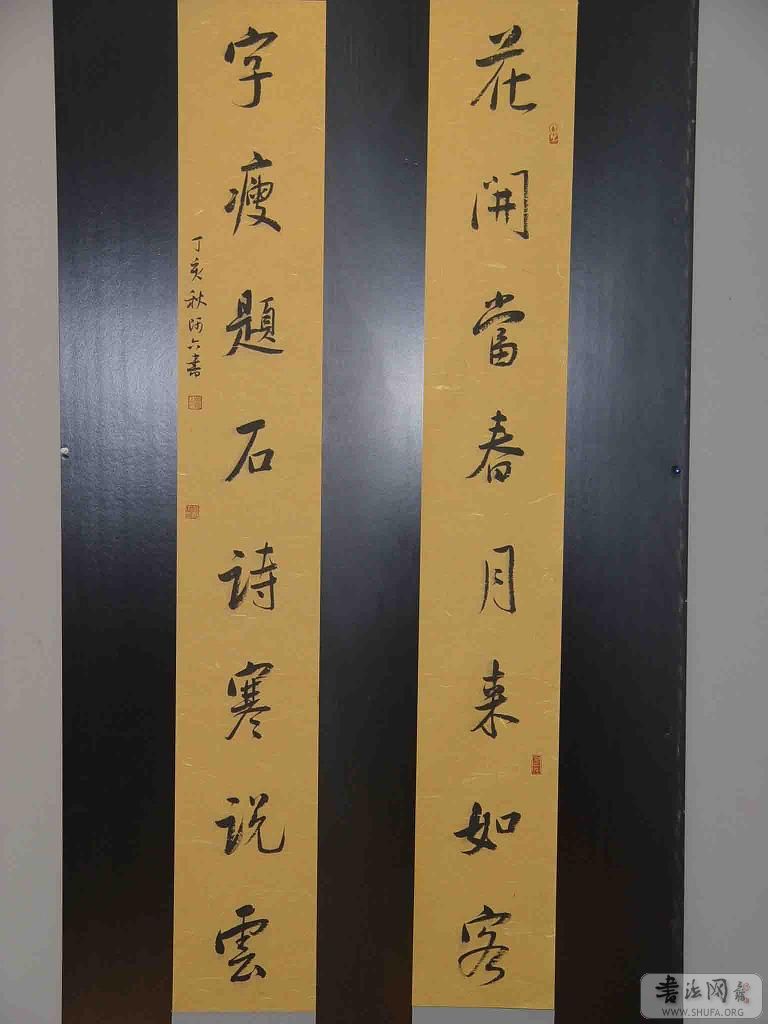 花開當春月来如客
字瘦題石詩寒説雲
丁亥秋阿六書
書法网
WWW.SHUFA.ORG